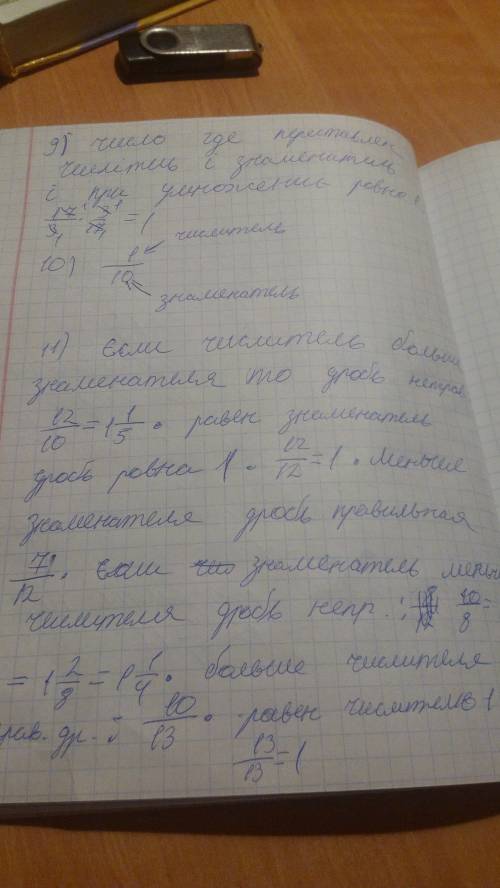 9) число где переставлен
числитель і знаменатель
і при умножении равно 1
17/9 · 9/17 = 1
числитель
10) 1/10
знаменатель
11) Если числитель больше
знаменателя то дробь неправ
12/10 = 1 1/5 · равен знаменатель
дробь ровна 1 · 12/12 = 1 · меньше
знаменателя дробь правильная
7/12 · Если знаменатель меньш
числителя дробь непр. : 10/8 =
= 1 2/8 = 1 1/4 · больше числителя
рав. др. : 10/13 · равен числителю 1
13/13 = 1